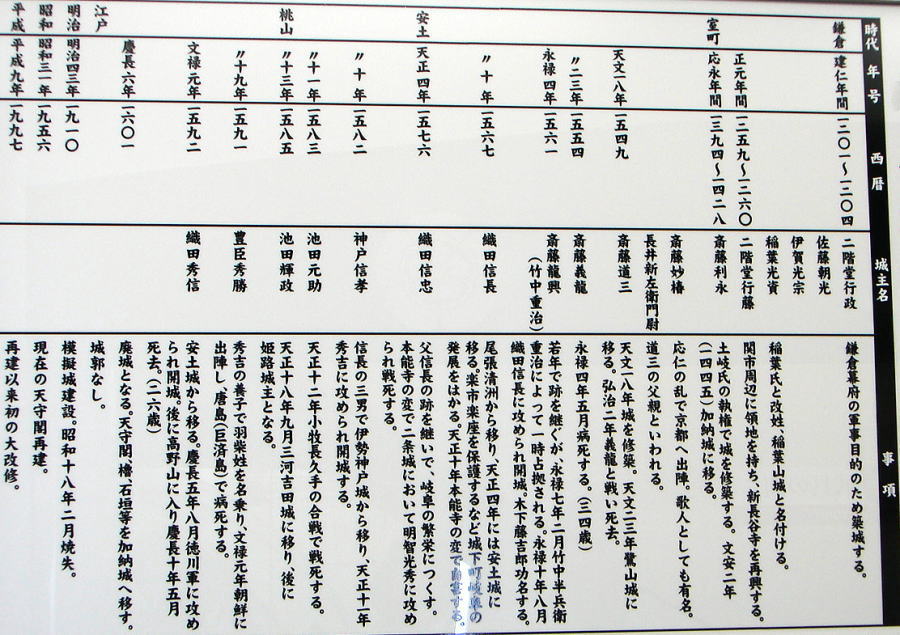 時代 年号 西暦 城主名 事項
鎌倉 建仁年間 一二〇一〜一二〇四 二階堂行政 鎌倉幕府の軍事目的のため築城する。
佐藤朝光
伊賀光宗
稲葉光資 稲葉氏と改姓、稲葉山城と名付ける。
正元年間 一二五九〜一二六〇 二階堂行藤 関市周辺に領地を持ち、新長谷寺を再興する。
室町 応永年間 一三九四〜一四二八 斎藤利永 土岐氏の執権で城を修築する。文安二年
(一四四五)加納城に移る。
斎藤妙椿 応仁の乱で京都へ出陣。歌人としても有名。
長井新左衛門尉 道三の父親といわれる。
天文一八年 一五四九 斎藤道三 天文一八年城を修築。天文二三年鷺山城に
移る。弘治二年義龍と戦い死去。
〃二三年 一五五四 斎藤義龍 永禄四年五月病死する。(三四歳)
永禄四年 一五六一 斎藤龍興 若年で跡を継ぐが、永禄七年二月竹中半兵衛
(竹中重治) 重治によって一時占拠される。永禄十年八月
織田信長に攻められ開城。木下藤吉郎功名する。
〃十年 一五六七 織田信長 尾張清洲から移り、天正四年には安土城に
移る。楽市楽座を保護するなど城下町岐阜の
発展をはかる。天正十年本能寺の変で自害する。
安土 天正四年 一五七六 織田信忠 父信長の跡を継いで、岐阜の繁栄につくす。
本能寺の変で二条城において明智光秀に攻め
られ戦死する。
〃十年 一五八二 神戸信孝 信長の三男で伊勢神戸城から移り、天正十一年
秀吉に攻められ開城する。
〃十一年 一五八三 池田元助 天正十二年小牧長久手の合戦で戦死する。
桃山 〃十三年 一五八五 池田輝政 天正十八年九月三河吉田城に移り、後に
姫路城主となる。
〃十九年 一五九一 豊臣秀勝 秀吉の養子で羽柴姓を名乗り、文禄元年朝鮮に
出陣し、唐島(巨済島)で病死する。
文禄元年 一五九二 織田秀信 安土城から移る。慶長五年八月徳川軍に攻め
られ開城。後に高野山に入り慶長十年五月
死去。(二六歳)
慶長六年 一六〇一 廃城となる。天守閣、櫓、石垣等を加納城へ移す。
江戸 城郭なし。
明治 明治四三年 一九一〇 模擬城建設。昭和十八年二月焼失。
昭和 昭和三一年 一九五六 現在の天守閣再建。
平成 平成九年 一九九七 再建以来初の大改修。